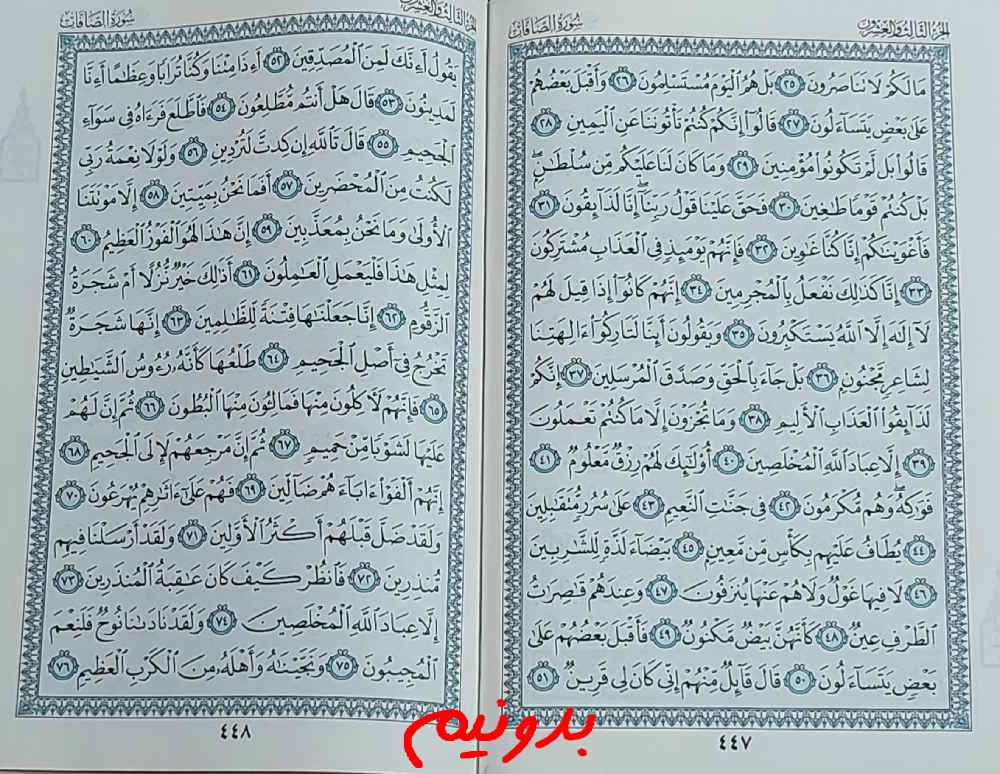 الجزء الثالث والعشرون
سورة الصافات
مَا لَكُمْ لَا تَنَاصَرُونَ ٢٥ بَلْ هُمُ ٱلْيَوْمَ مُسْتَسْلِمُونَ ٢٦ وَأَقْبَلَ بَعْضُهُمْ
عَلَىٰ بَعْضٍ يَتَسَآءَلُونَ ٢٧ قَالُوٓا۟ إِنَّكُمْ كُنتُمْ تَأْتُونَنَا عَنِ ٱلْيَمِينِ ٢٨
قَالُوا۟ بَل لَّمْ تَكُونُوا۟ مُؤْمِنِينَ ٢٩ وَمَا كَانَ لَنَا عَلَيْكُم مِّن سُلْطَٰنٍۭ ۖ
بَلْ كُنتُمْ قَوْمًا طَٰغِينَ ٣٠ فَحَقَّ عَلَيْنَا قَوْلُ رَبِّنَآ ۖ إِنَّا لَذَآئِقُونَ ٣١
فَأَغْوَيْنَٰكُمْ إِنَّا كُنَّا غَٰوِينَ ٣٢ فَإِنَّهُمْ يَوْمَئِذٍ فِى ٱلْعَذَابِ مُشْتَرِكُونَ
٣٣ إِنَّا كَذَٰلِكَ نَفْعَلُ بِٱلْمُجْرِمِينَ ٣٤ إِنَّهُمْ كَانُوٓا۟ إِذَا قِيلَ لَهُمْ
لَآ إِلَٰهَ إِلَّا ٱللَّهُ يَسْتَكْبِرُونَ ٣٥ وَيَقُولُونَ أَئِنَّا لَتَارِكُوٓا۟ ءَالِهَتِنَا
لِشَاعِرٍ مَّجْنُونٍۭ ٣٦ بَلْ جَآءَ بِٱلْحَقِّ وَصَدَّقَ ٱلْمُرْسَلِينَ ٣٧ إِنَّكُمْ
لَذَآئِقُوا۟ ٱلْعَذَابِ ٱلْأَلِيمِ ٣٨ وَمَا تُجْزَوْنَ إِلَّا مَا كُنتُمْ تَعْمَلُونَ
٣٩ إِلَّا عِبَادَ ٱللَّهِ ٱلْمُخْلَصِينَ ٤٠ أُو۟لَٰٓئِكَ لَهُمْ رِزْقٌ مَّعْلُومٌ ٤١
فَوَٰكِهُ ۖ وَهُم مُّكْرَمُونَ ٤٢ فِى جَنَّٰتِ ٱلنَّعِيمِ ٤٣ عَلَىٰ سُرُرٍ مُّتَقَٰبِلِينَ
٤٤ يُطَافُ عَلَيْهِم بِكَأْسٍ مِّن مَّعِينٍۭ ٤٥ بَيْضَآءَ لَذَّةٍ لِّلشَّٰرِبِينَ
٤٦ لَا فِيهَا غَوْلٌ وَلَا هُمْ عَنْهَا يُنزَفُونَ ٤٧ وَعِندَهُمْ قَٰصِرَٰتُ
ٱلطَّرْفِ عِينٌ ٤٨ كَأَنَّهُنَّ بَيْضٌ مَّكْنُونٌ ٤٩ فَأَقْبَلَ بَعْضُهُمْ عَلَىٰ
بَعْضٍ يَتَسَآءَلُونَ ٥٠ قَالَ قَآئِلٌ مِّنْهُمْ إِنِّى كَانَ لِى قَرِينٌ ٥١
٤٤٧
الجزء الثالث والعشرون
سورة الصافات
يَقُولُ أَءِنَّكَ لَمِنَ ٱلْمُصَدِّقِينَ ٥٢ أَءِذَا مِتْنَا وَكُنَّا تُرَابًا وَعِظَٰمًا أَءِنَّا
لَمَدِينُونَ ٥٣ قَالَ هَلْ أَنتُم مُّطَّلِعُونَ ٥٤ فَٱطَّلَعَ فَرَءَاهُ فِى سَوَآءِ
ٱلْجَحِيمِ ٥٥ قَالَ تَٱللَّهِ إِن كِدتَّ لَتُرْدِينِ ٥٦ وَلَوْلَا نِعْمَةُ رَبِّى
لَكُنتُ مِنَ ٱلْمُحْضَرِينَ ٥٧ أَفَمَا نَحْنُ بِمَيِّتِينَ ٥٨ إِلَّا مَوْتَتَنَا
ٱلْأُولَىٰ وَمَا نَحْنُ بِمُعَذَّبِينَ ٥٩ إِنَّ هَٰذَا لَهُوَ ٱلْفَوْزُ ٱلْعَظِيمُ ٦٠
لِمِثْلِ هَٰذَا فَلْيَعْمَلِ ٱلْعَٰمِلُونَ ٦١ أَذَٰلِكَ خَيْرٌ نُّزُلًا أَمْ شَجَرَةُ
ٱلزَّقُّومِ ٦٢ إِنَّا جَعَلْنَٰهَا فِتْنَةً لِّلظَّٰلِمِينَ ٦٣ إِنَّهَا شَجَرَةٌ
تَخْرُجُ فِىٓ أَصْلِ ٱلْجَحِيمِ ٦٤ طَلْعُهَا كَأَنَّهُۥ رُءُوسُ ٱلشَّيَٰطِينِ
٦٥ فَإِنَّهُمْ لَءَاكِلُونَ مِنْهَا فَمَالِـُٔونَ مِنْهَا ٱلْبُطُونَ ٦٦ ثُمَّ إِنَّ لَهُمْ
عَلَيْهَا لَشَوْبًا مِّنْ حَمِيمٍ ٦٧ ثُمَّ إِنَّ مَرْجِعَهُمْ لَإِلَى ٱلْجَحِيمِ ٦٨
إِنَّهُمْ أَلْفَوْا۟ ءَابَآءَهُمْ ضَآلِّينَ ٦٩ فَهُمْ عَلَىٰٓ ءَاثَٰرِهِمْ يُهْرَعُونَ ٧٠
وَلَقَدْ ضَلَّ قَبْلَهُمْ أَكْثَرُ ٱلْأَوَّلِينَ ٧١ وَلَقَدْ أَرْسَلْنَا فِيهِم
مُّنذِرِينَ ٧٢ فَٱنظُرْ كَيْفَ كَانَ عَٰقِبَةُ ٱلْمُنذَرِينَ ٧٣
إِلَّا عِبَادَ ٱللَّهِ ٱلْمُخْلَصِينَ ٧٤ وَلَقَدْ نَادَىٰنَا نُوحٌ فَلَنِعْمَ
ٱلْمُجِيبُونَ ٧٥ وَنَجَّيْنَٰهُ وَأَهْلَهُۥ مِنَ ٱلْكَرْبِ ٱلْعَظِيمِ ٧٦
٤٤٨
بدونیم